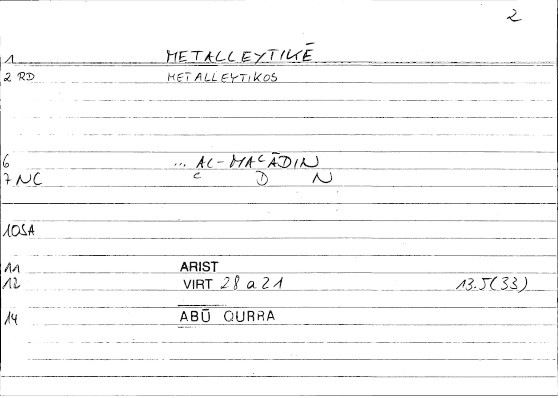 2
1 METALLEYTIKĒ
2 RD METALLEYTIKOS
6 ... AL-MAʿĀDIN
7 NC ʿ D N
10SA
11 ARIST
12 VIRT 28 a 21 13.5(33)
14 ABŪ QURRA